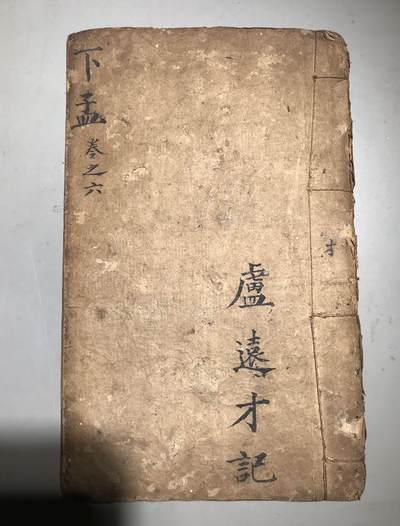 下孟
卷之六
盧遠才記
才